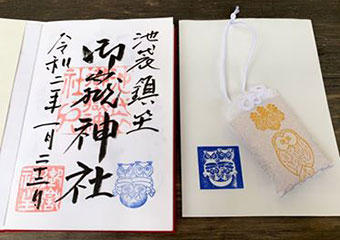 池袋鎮座
御嶽神社
令和二年一月二十二日